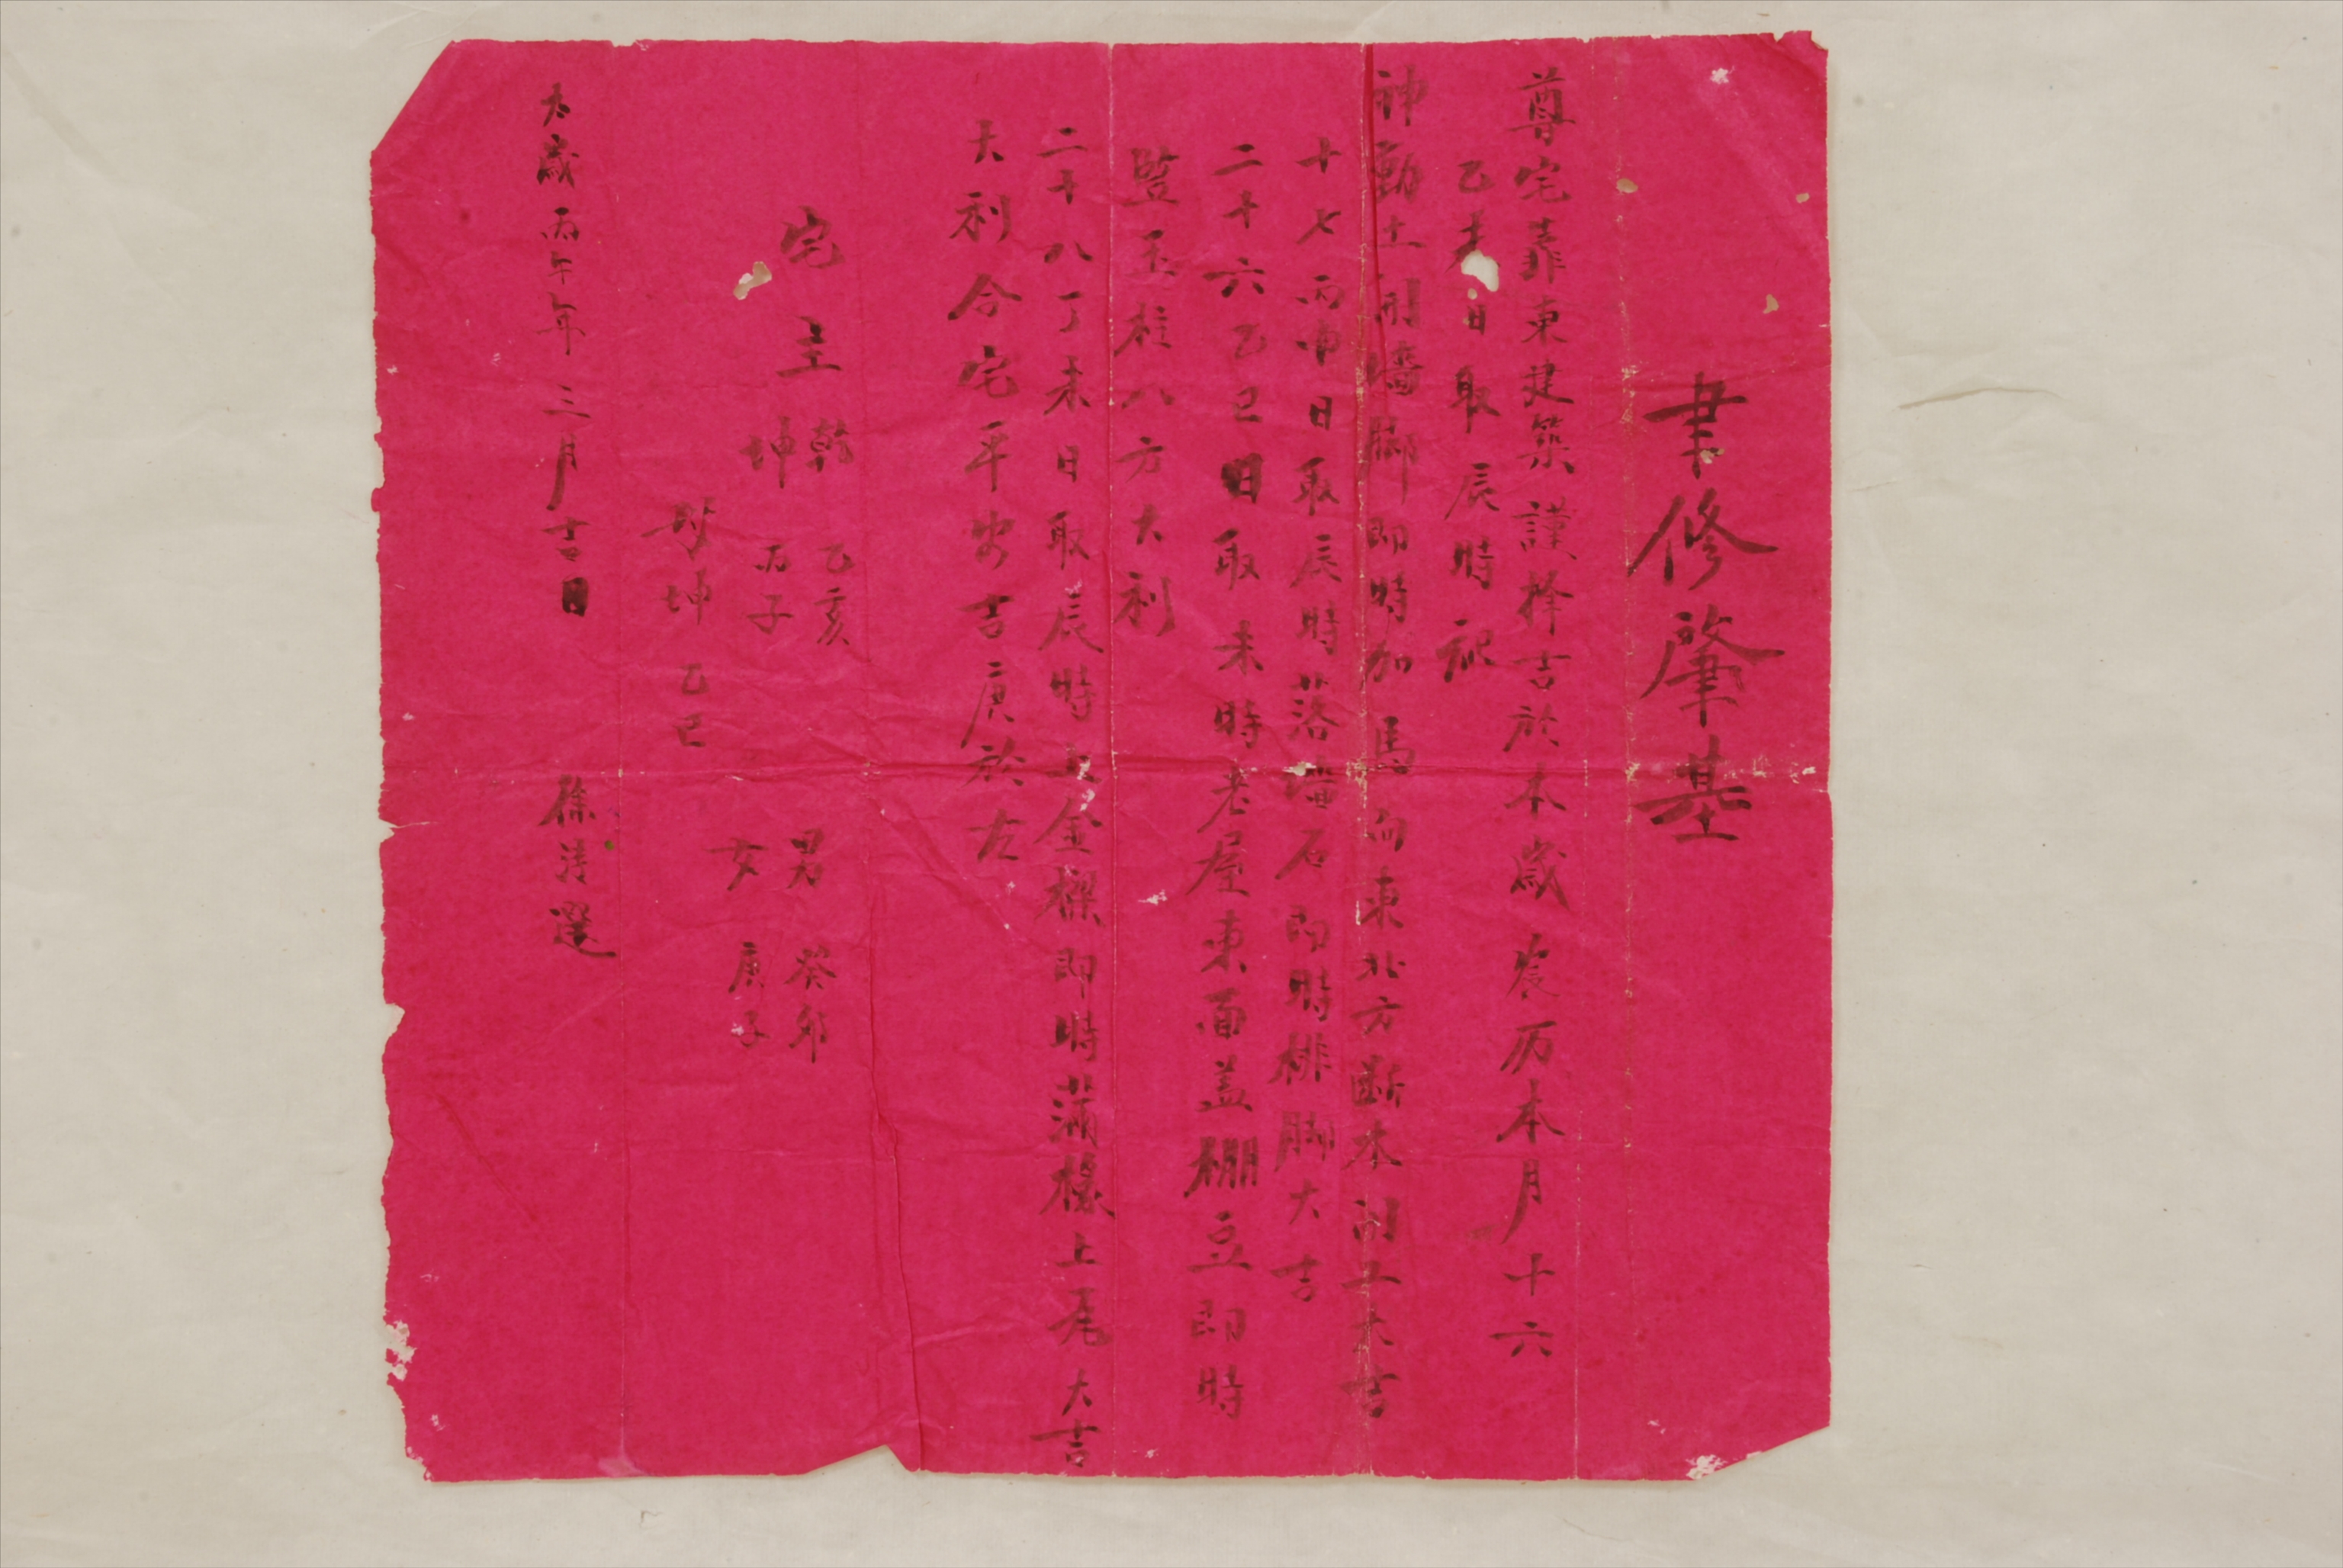 聿修肇基
尊宅靠東建築謹择吉於本歲農历本月十六
乙未日取辰時祀
神動土開墻脚即時加馬向東北方斷木開工大吉
十七丙申日取辰時落墻石即時排脚大吉
二十六乙巳日取未時老屋東面盖棚豆即時
竖玉柱八方大利
二十八丁未日取辰時上金樑即時蒲椽上尾大吉
大利合宅平安吉庚於左
宅主乾乙亥 男癸卯
坤丙子 女庚子
坤乙巳
太歲丙午年三月吉日 徐清選